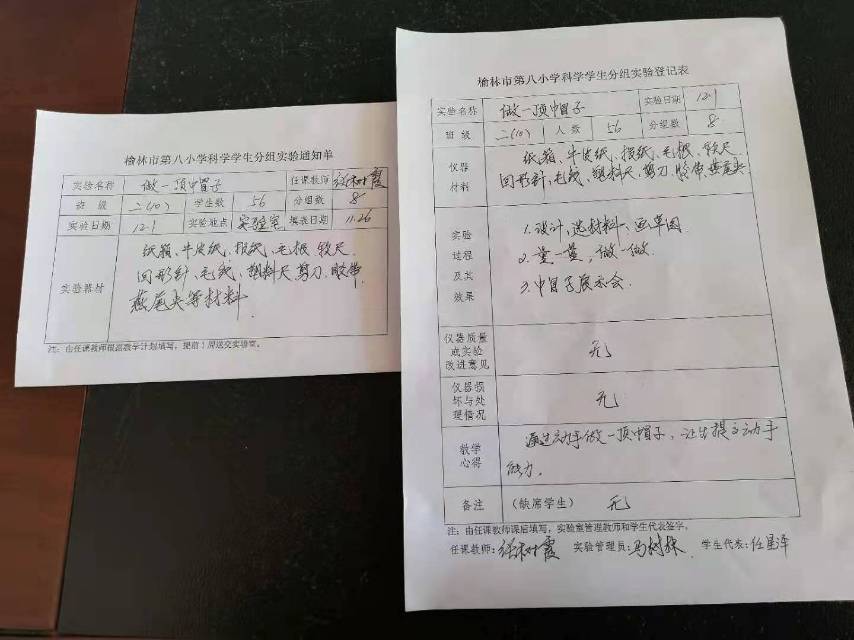 榆林市第八小学科学学生分组实验通知单
实验名称 做一顶帽子 任课教师
班 级 二(10) 学生数 56 分组数 8
实验日期 12.1 实验地点 实验室 填表日期 11.26
实验器材
纸箱、牛皮纸、报纸、毛根、软尺、
回形针、毛线、塑料尺、剪刀、胶带、
燕尾夹等材料
注:由任课教师根据教学计划填写,提前1周送交实验室。
榆林市第八小学科学学生分组实验登记表
实验名称 做一顶帽子 实验日期 12.1
班 级 二(10) 人 数 56 分组数 8
仪器
材料
纸箱、牛皮纸、报纸、毛根、软尺
回形针、毛线、塑料尺、剪刀、胶带、燕尾夹
实验
过程
及其
效果
1.设计、选材料、画草图
2.量一量,做一做
3.帽子展示会.
仪器质量
或实验
改进意见
无
仪器损
坏与处
理情况
无
教学
心得
通过动手做一顶帽子,让生提高动手
能力.
备注 (缺席学生) 无
注:由任课教师课后填写,实验室管理教师和学生代表签字。
任课教师: 实验管理员:马树林 学生代表:任星泽